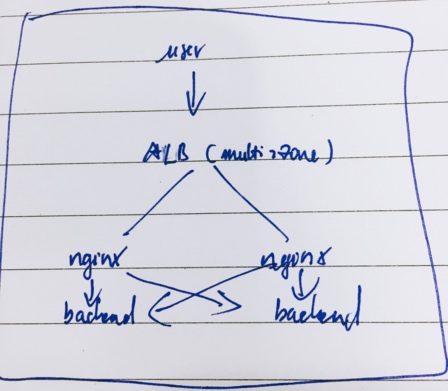 user
ALB (multi-zone)
nginx nginx
backend backend